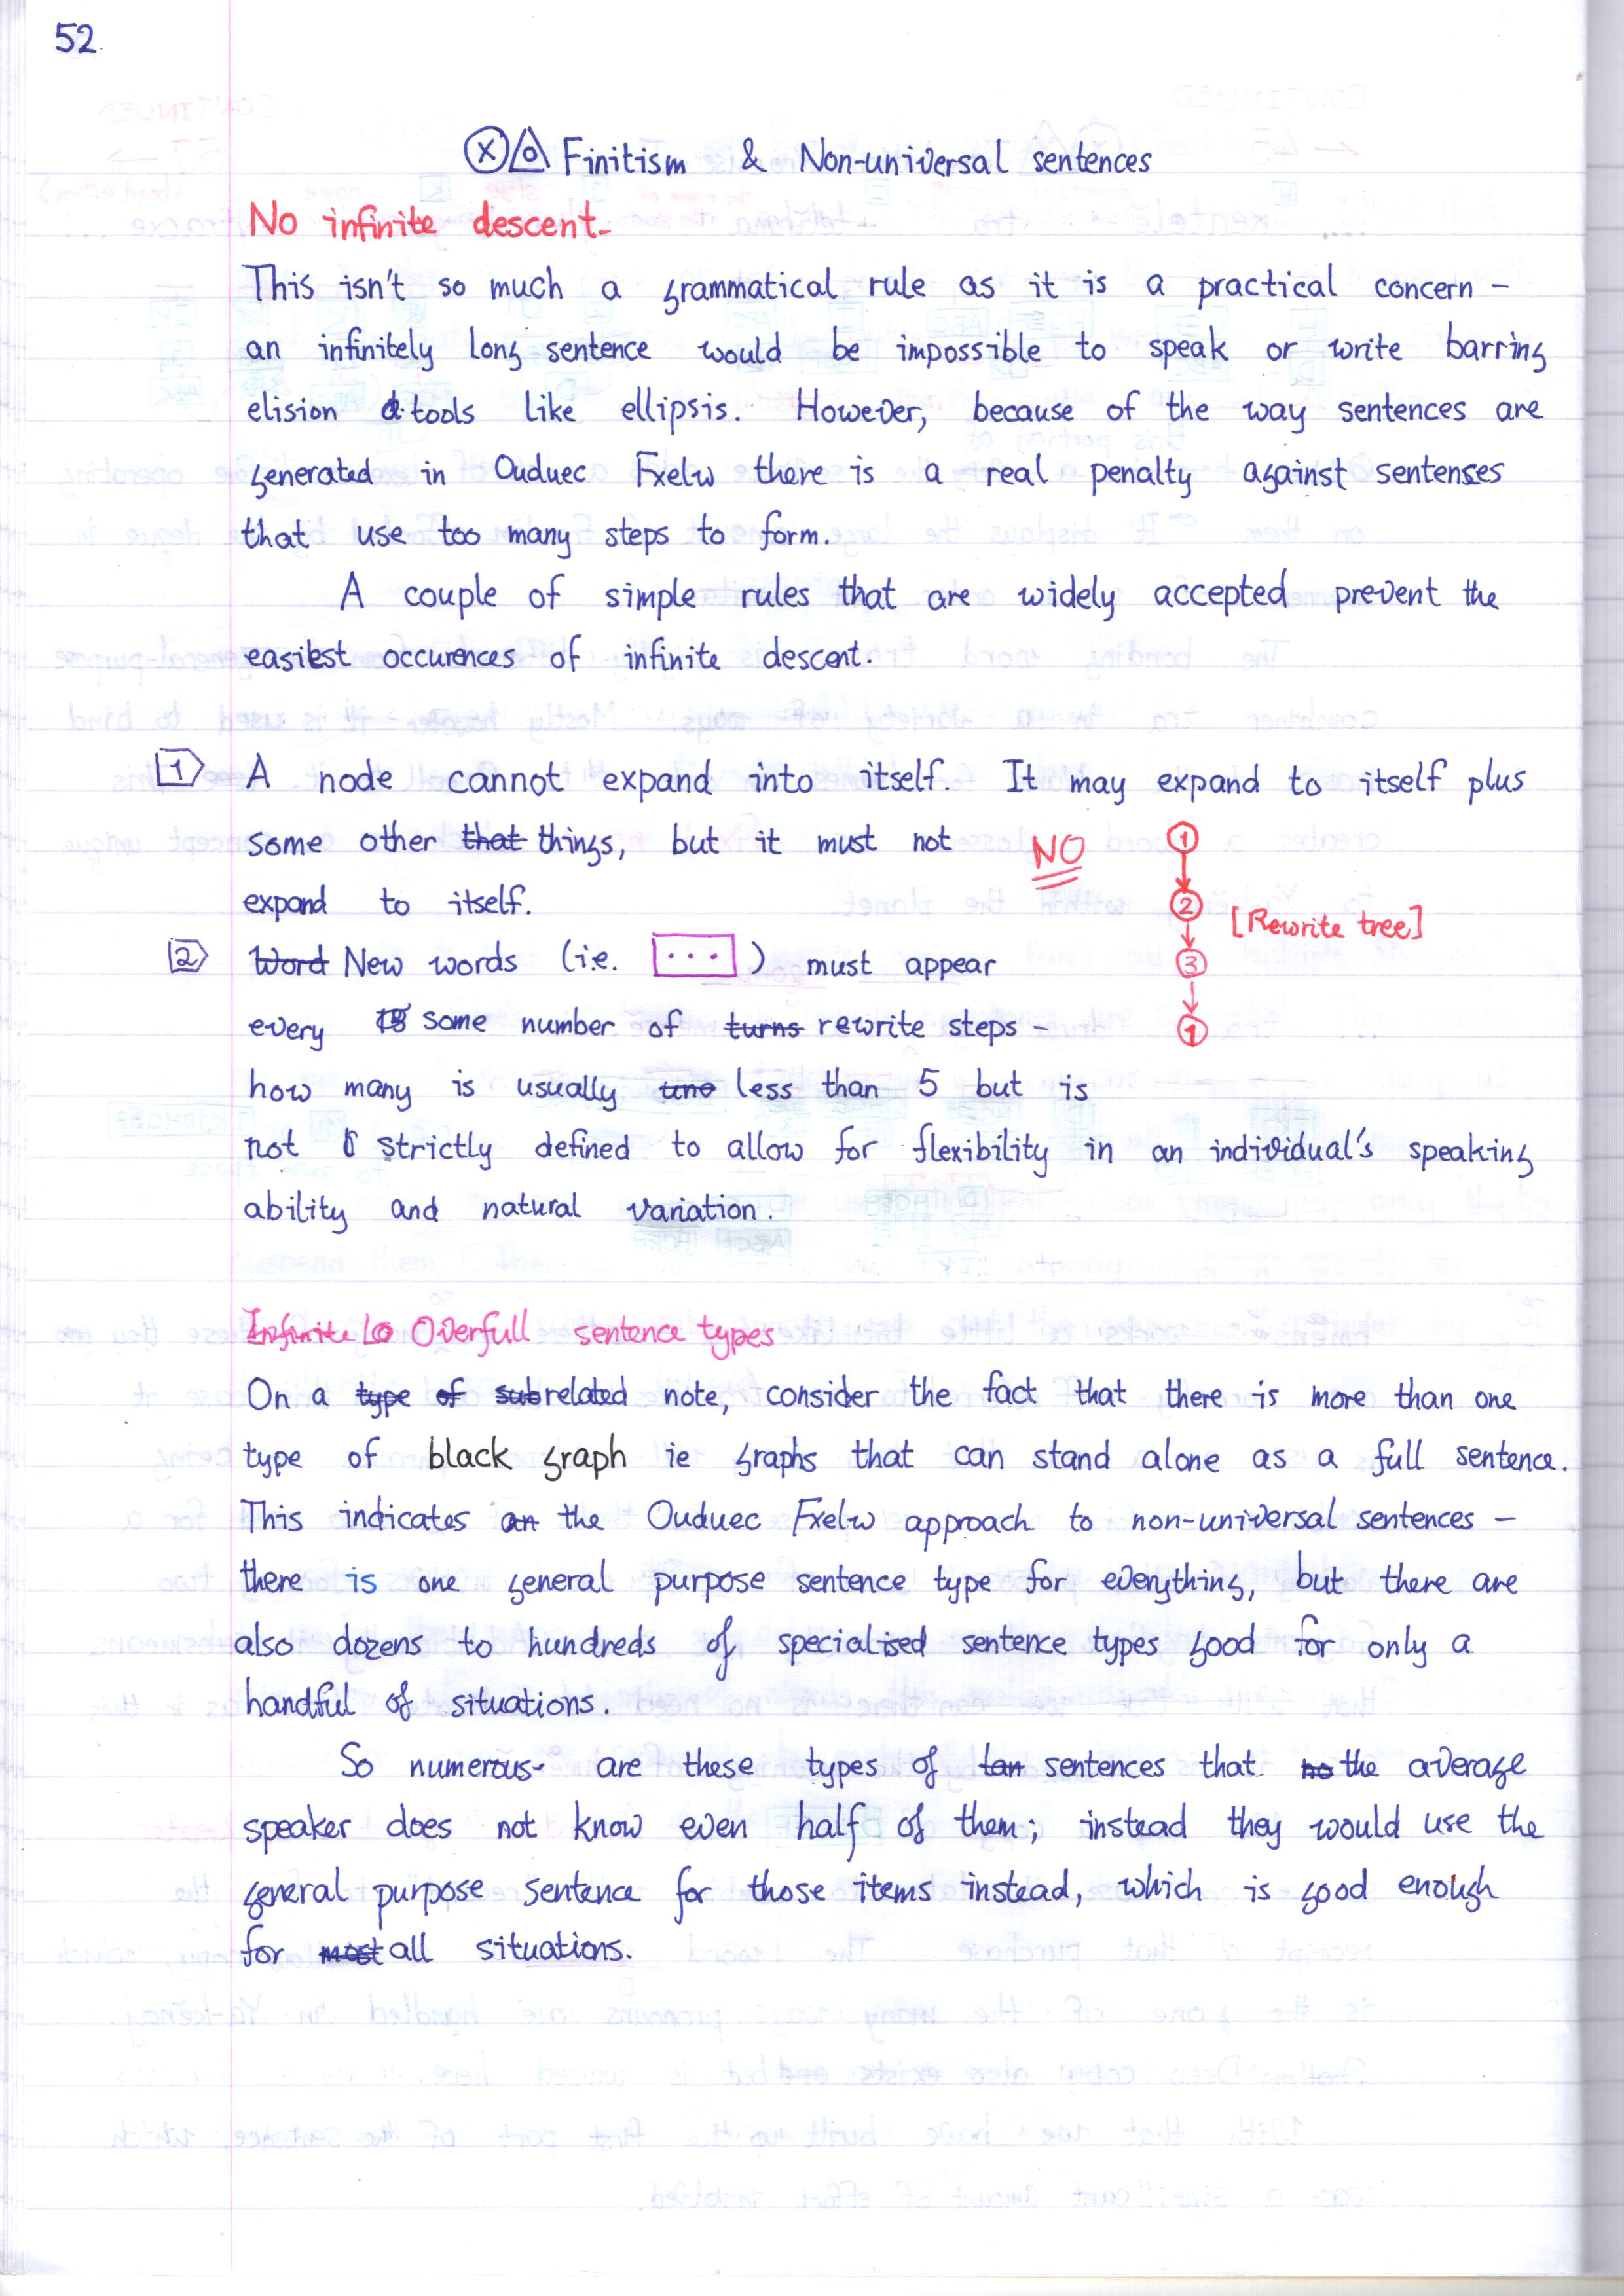 52
Ⓧ Finitism & Non-universal sentences
No infinite descent.
This isn't so much a grammatical rule as it is a practical concern -
an infinitely long sentence would be impossible to speak or write barring
elision & tools like ellipsis. However, because of the way sentences are
generated in Ouduec Fxelw there is a real penalty against sentenses
that use too many steps to form.
A couple of simple rules that are widely accepted prevent the
easiest occurences of infinite descent.
1 A node cannot expand into itself. It may expand to itself plus
some other that things, but it must not
expand to itself.
NO
1
2
[Rewrite tree]
3
1
2 Word New words (i.e. [...]) must appear
every some number of turns rewrite steps -
how many is usually less than 5 but is
not strictly defined to allow for flexibility in an individual's speaking
ability and natural variation.
Infinite Lo Overfull sentence types
On a type of sub related note, consider the fact that there is more than one
type of black graph ie graphs that can stand alone as a full sentence.
This indicates an the Ouduec Fxelw approach to non-universal sentences -
there is one general purpose sentence type for everything, but there are
also dozens to hundreds of specialised sentence types good for only a
handful of situations.
So numerous are these types of tan sentences that no the average
speaker does not know even half of them; instead they would use the
general purpose sentence for those items instead, which is good enough
for most all situations.